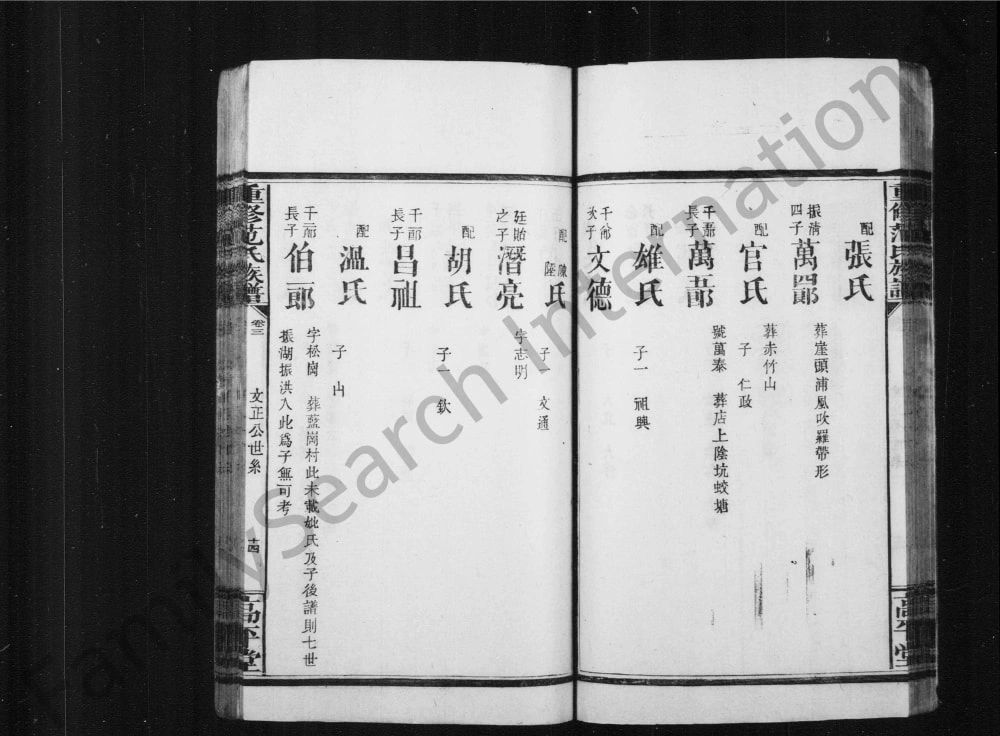 重修范氏族譜
配 張氏
振清四子 萬四郎 葬崖頭浦風吹羅帶形
配 官氏 葬赤竹山
子 仁政
千一郎長子 萬五郎 號萬泰 葬店上隆坑蛟塘
配 雄氏 子一 祖興
千一郎次子 文德
配 陳 陸 氏 子 文通
廷貽之子 潛亮 字志明
配 胡氏 子一 欽
長子 昌祖
配 溫氏 子 山
長子 伯一郎 字松崗 葬藍崗村此未載妣氏及子後譜則七世
振湖振洪入此爲子無可考
重修范氏族譜 卷三 文正公世系 十四 高平堂
高平堂
FamilySearch International